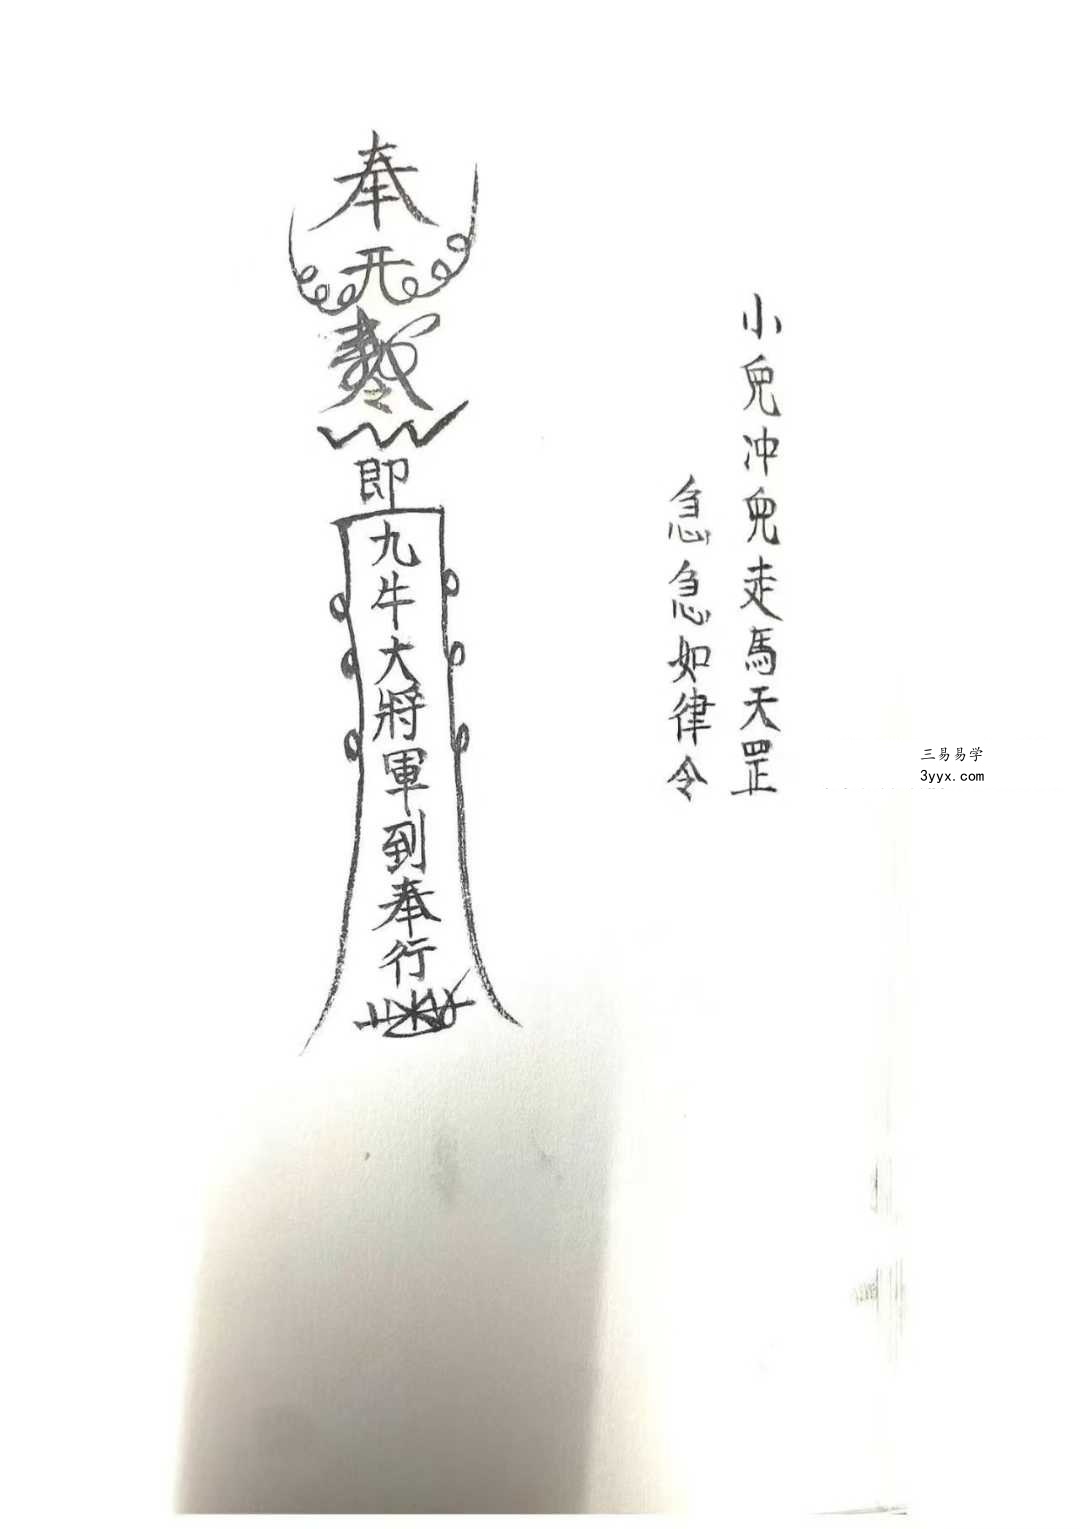 小兒冲兒走馬天罡
急急如律令
奉
即
九牛大將軍到奉行
三易易学
3yyx.com